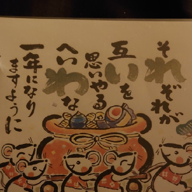 それぞれが
互いを
思いやる
へいわな
一年になり
ますように